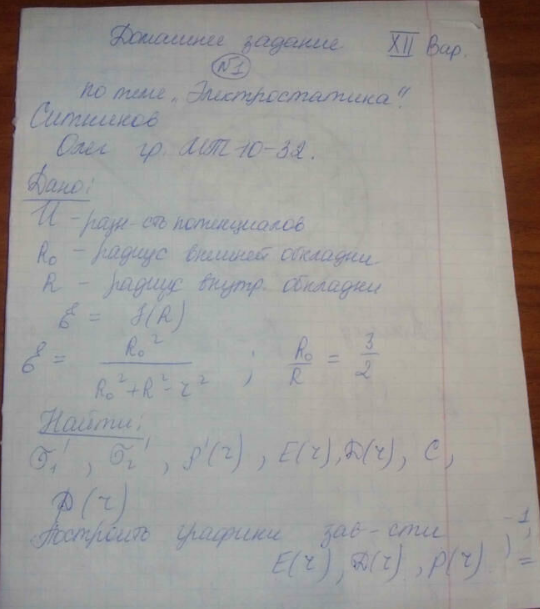 Домашнее задание XII Вар.
№1
по теме „Электростатика".
Ситников
Олег гр. МТ 10-32.
Дано:
U - разн-сть потенциалов
R₀ - радиус внешней обкладки
R - радиус внутр. обкладки
ℰ = f(R)
ℰ = R₀² / (R₀² + R² - r²) ; R₀/R = 3/2
Найти:
σ₁', σ₂', ρ'(r), E(r), D(r), C,
P(r)
Построить графики зав-сти
E(r), D(r), P(r)